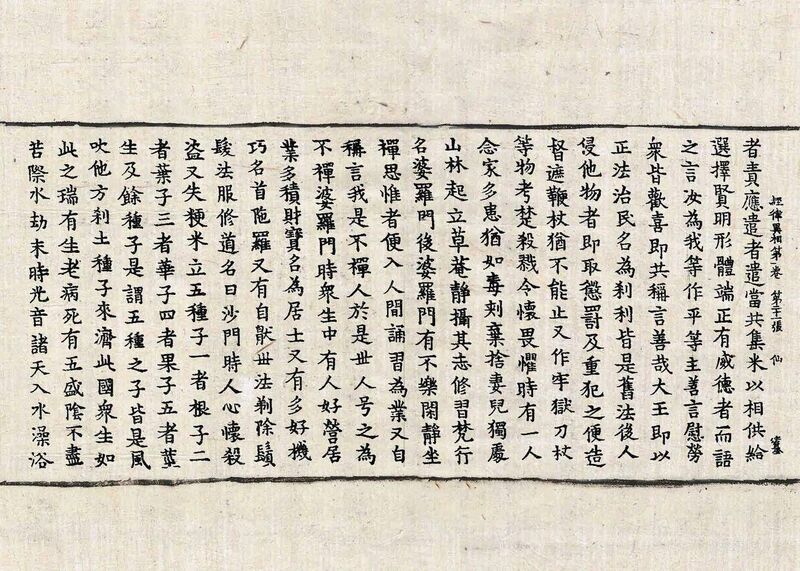 經律異相第一卷 第十二張 仙
者責應遣者遣當共集米以相供給
選擇賢明形體端正有威德者而語
之言汝為我等作平等主善言慰勞
衆皆歡喜即共稱言善哉大王即以
正法治民名為刹利皆是舊法後人
侵他物者即取懲罰及重犯之便造
督遮鞭杖猶不能止又作牢獄刀杖
等物考楚殺戮令懷畏懼時有一人
念家多患猶如毒刺棄捨妻兒獨處
山林起立草菴靜攝其志修習梵行
名婆羅門後婆羅門有不樂閑靜坐
禪思惟者便入人間誦習為業又自
稱言我是不禪人於是世人号之為
不禪婆羅門時衆生中有人好營居
業多積財寶名為居士又有多好機
巧名首陁羅又有自猒世法剃除鬚
髮法服修道名曰沙門時人心懷殺
盗又失粳米立五種子一者根子二
者葉子三者華子四者果子五者莖
生及餘種子是謂五種之子皆是風
吹他方刹土種子來濟此國衆生如
此之瑞有生老病死有五盛陰不盡
苦際水劫末時光音諸天入水澡浴